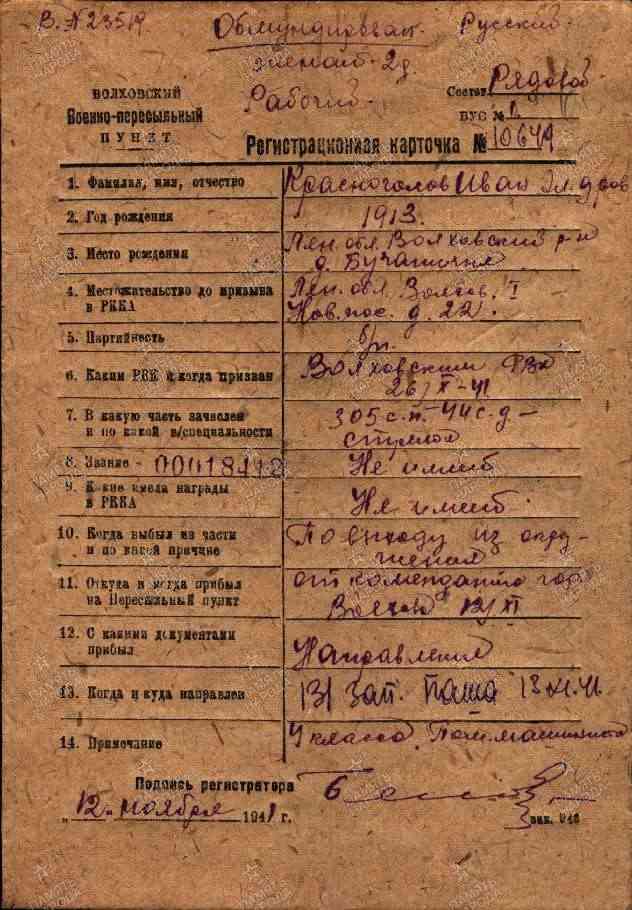 В. № 23519
Обмундирован. Русский.
женат 2д.
Рабочий.
Состав Рядовой
ВУС №
ВОЛХОВСКИЙ
Военно-пересыльный
ПУНКТ
Регистрационная карточка №
1. Фамилия, имя, отчество Красноголов Иван
2. Год рождения 1913.
3. Место рождения Лен. обл. Волховский р-н
д.
4. Местожительство до призыва Лен. обл. Волхов. I
в РККА Нов. пос. д. 22.
5. Партийность б/п.
6. Каким РВК и когда призван Волховским РВК
26/X-41
7. В какую часть зачислен 305 с.п. 44 с.д-
и по какой в/специальности стрелок
8. Звание - 00018412 Не имеет
9. Какие имела награды Не имеет
в РККА
10. Когда выбыл из части По выходу из окру-
и по какой причине жения
11. Откуда и когда прибыл от коменданта гор
на Пересыльный пункт Волхова 12/XI
12. С какими документами
прибыл Направления
13. Когда и куда направлен 131 зап. Паша 13.XI.41
14. Примечание 4 класса, Пом. машиниста
Подпись регистратора
„12" ноября 1941 г.
Зак. 946
ПАМЯТЬ НАРОДА